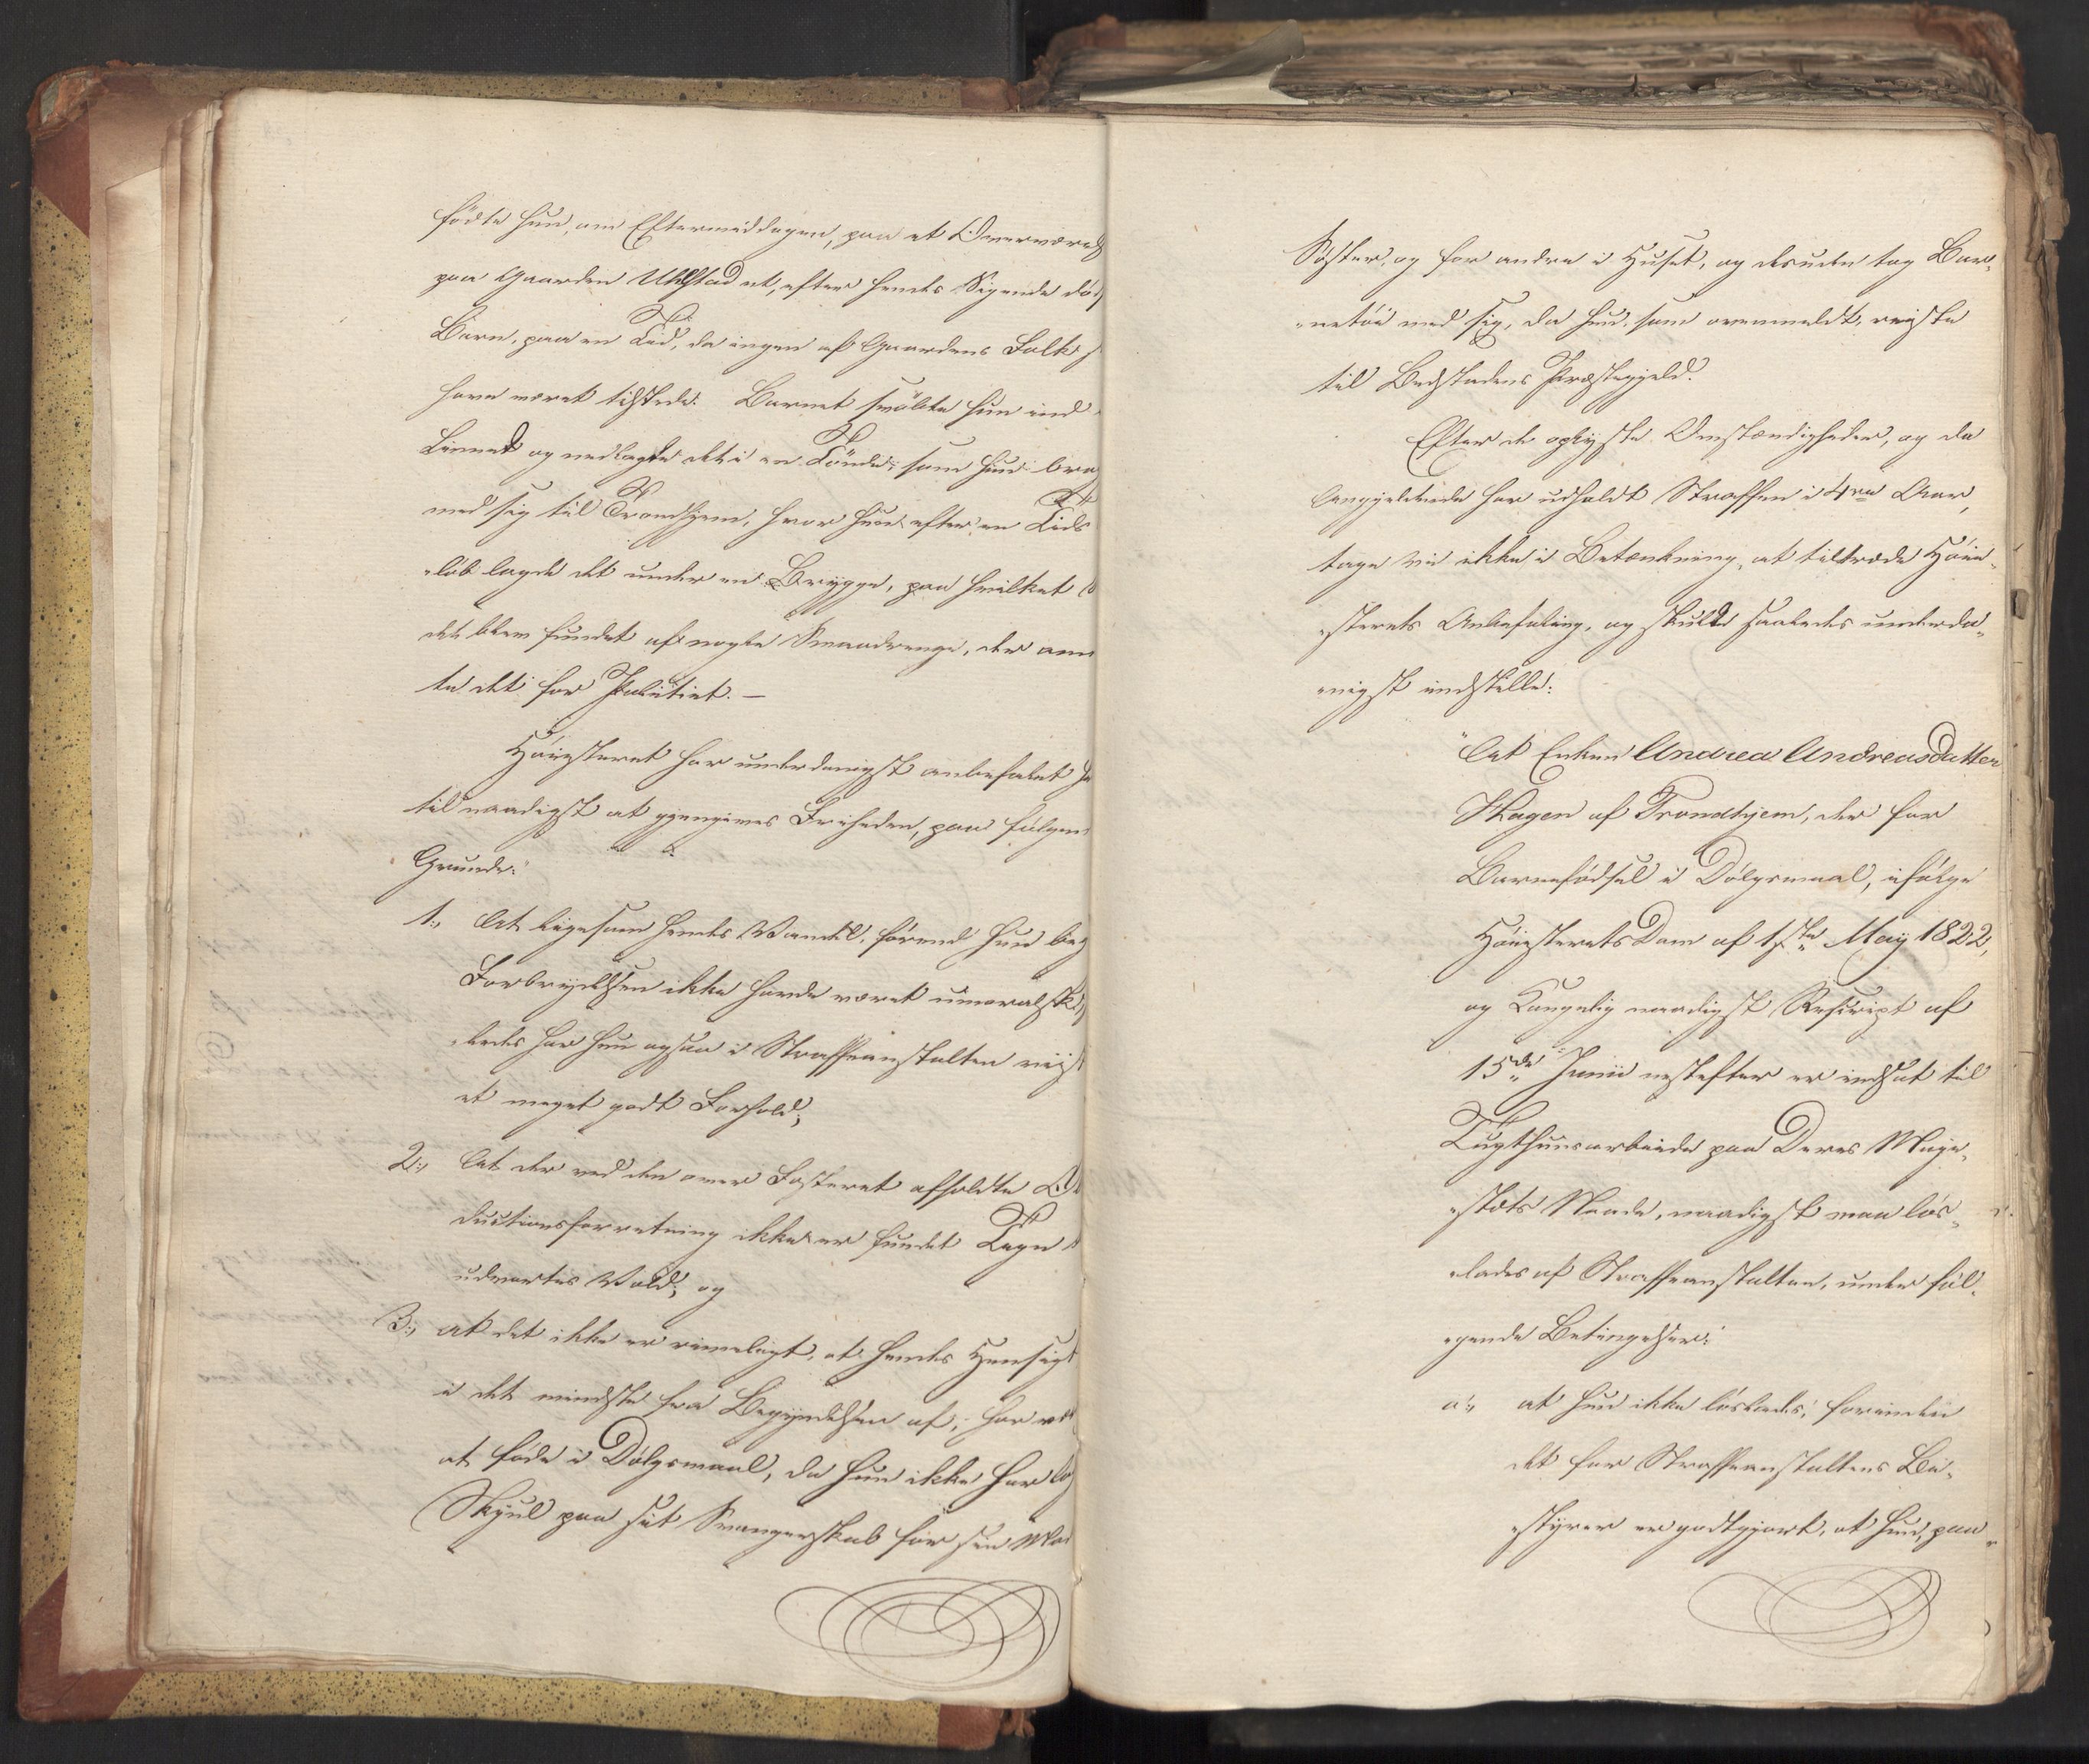 födte hun, om Eftermiddagen, paa et Qverværels
paa Gaarden Uhlstad et, efter hendes Sigende død
Barn, paa en Tid, da ingen af Gaardens Folk s
have været tilstede. Barnet svöbte hun ind
Linned og nedlagde det i en Tönde, som hun bra
med sig til Trondhjem, hvor hun efter en Tids
löb lagde det under en Brygge, paa hvilket
det blev fundet af nogle Smaadrenge, der anm
te det for Politiet. –
Höiesteret har underdanigst anbefalet h
til naadigst at gjengives Friheden, paa fölgen
Grunde:
1., At ligesom hendes Vandel, förend hun beg
Forbrydelsen ikke havde været umoralsk,
ledes har hun ogsaa i Straffeanstalten viist
et meget godt Forhold;
2., At der ved den over Fosteret afholdte Ob
ductionsforretning ikke er fundet Tegn
udvortes Vold; og
3., at det ikke er rimeligt, at hendes Hensigt
i det mindste fra Begyndelsen af, har vær
at föde i Dölgsmaal, da hun ikke har lag
Skjul paa sit Svangerskab for sin Mo
Söster, og for andre i Huset, og desuden tog Bar„
„netöi med sig, da hun, som ovenmeldt, reiste
til Bedstadens Præstegjeld.
Efter de oplyste Omstændigheder, og da
Angjeldende har udholdt Straffen i 4re Aar,
tage vi ikke i Betænkning, at tiltræde Höie„
„sterets Anbefaling, og skulde saaledes underda„
„nigst indstille:
"At Enken Andrea Andreasdatter
Hagen af Trondhjem, der for
Barnefödsel i Dölgsmaal, ifölge
Höiesterets Dom af 17de May 1822,
og Kongelig naadigst Rescript af
15de Junii nestefter er indsat til
Tugthuusarbeide paa Deres Maje„
„stæts Naade, naadigst maa lös„
„lades af Straffeanstalten, under föl„
„gende Betingelser:
a., at hun ikke löslades, forinden
det for Straffeanstaltens Be„
„styrer er godtgjort, at hun, paa